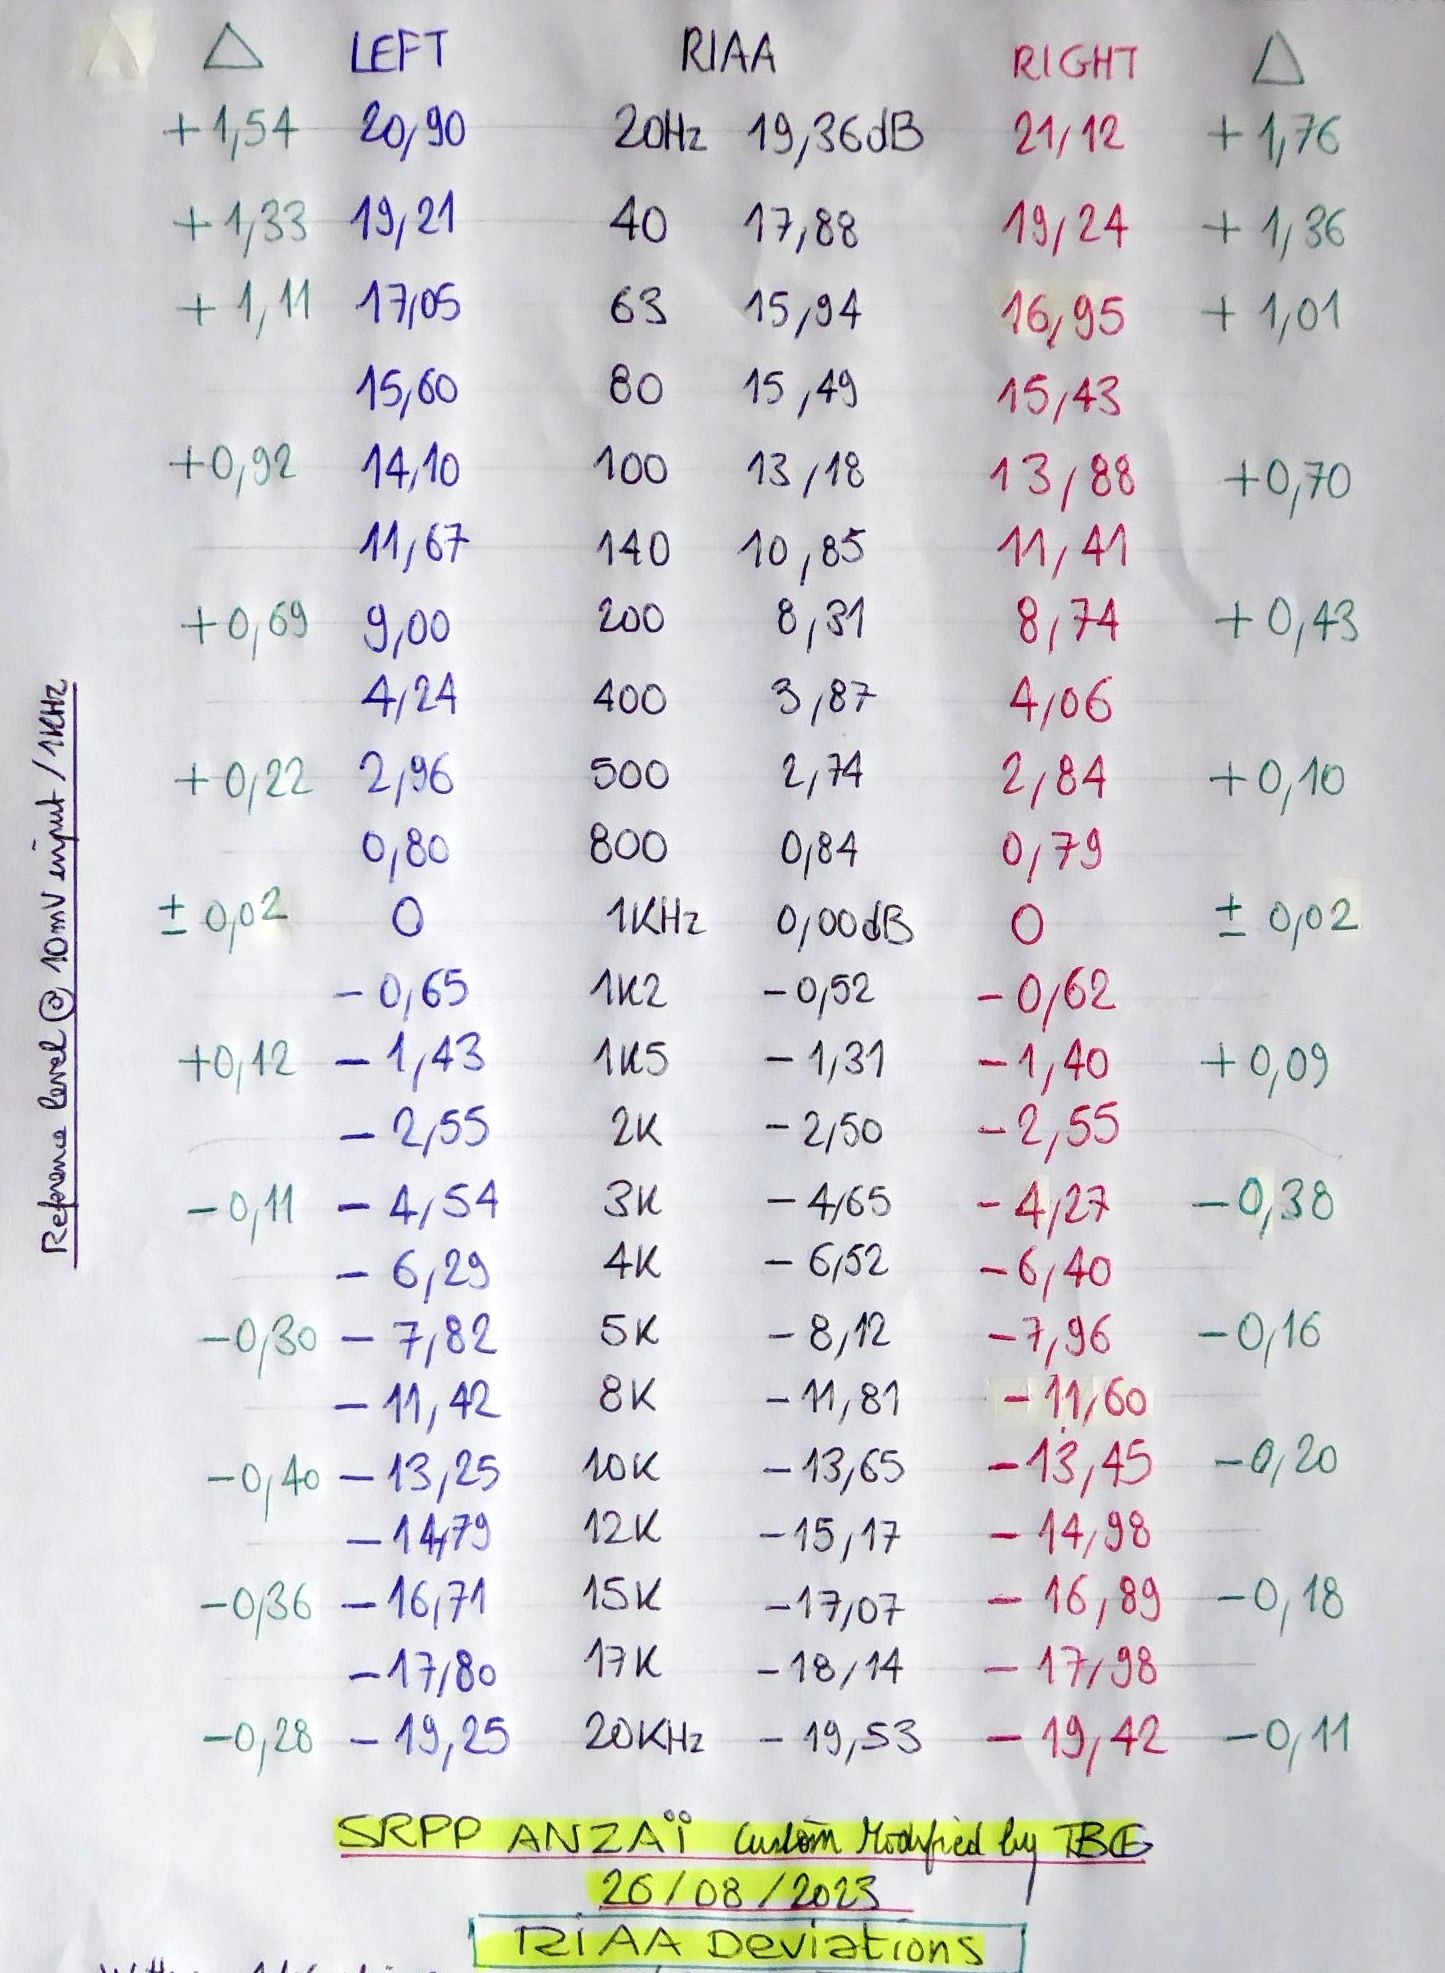 △ LEFT RIAA RIGHT △
+1,54 20,90 20Hz 19,36dB 21,12 +1,76
+1,33 19,21 40 17,88 19,24 +1,36
+1,11 17,05 63 15,94 16,95 +1,01
15,60 80 15,49 15,43
+0,92 14,10 100 13,18 13,88 +0,70
11,67 140 10,85 11,41
+0,69 9,00 200 8,31 8,74 +0,43
4,24 400 3,87 4,06
+0,22 2,96 500 2,74 2,84 +0,10
0,80 800 0,84 0,79
± 0,02 0 1KHz 0,00dB 0 ± 0,02
-0,65 1K2 -0,52 -0,62
+0,12 -1,43 1K5 -1,31 -1,40 +0,09
-2,55 2K -2,50 -2,55
-0,11 -4,54 3K -4,65 -4,27 -0,38
-6,29 4K -6,52 -6,40
-0,30 -7,82 5K -8,12 -7,96 -0,16
-11,42 8K -11,81 -11,60
-0,40 -13,25 10K -13,65 -13,45 -0,20
-14,79 12K -15,17 -14,98
-0,36 -16,71 15K -17,07 -16,89 -0,18
-17,80 17K -18,14 -17,98
-0,28 -19,25 20KHz -19,53 -19,42 -0,11
Reference level @ 10mV input / 1KHz
SRPP ANZAÏ Custom Modified by TBCE
26/08/2023
RIAA Deviations